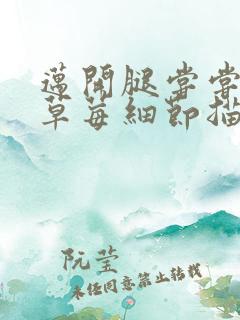 邁開腿嘗嘗
草莓細節描
阮莹
未经同意禁止转载